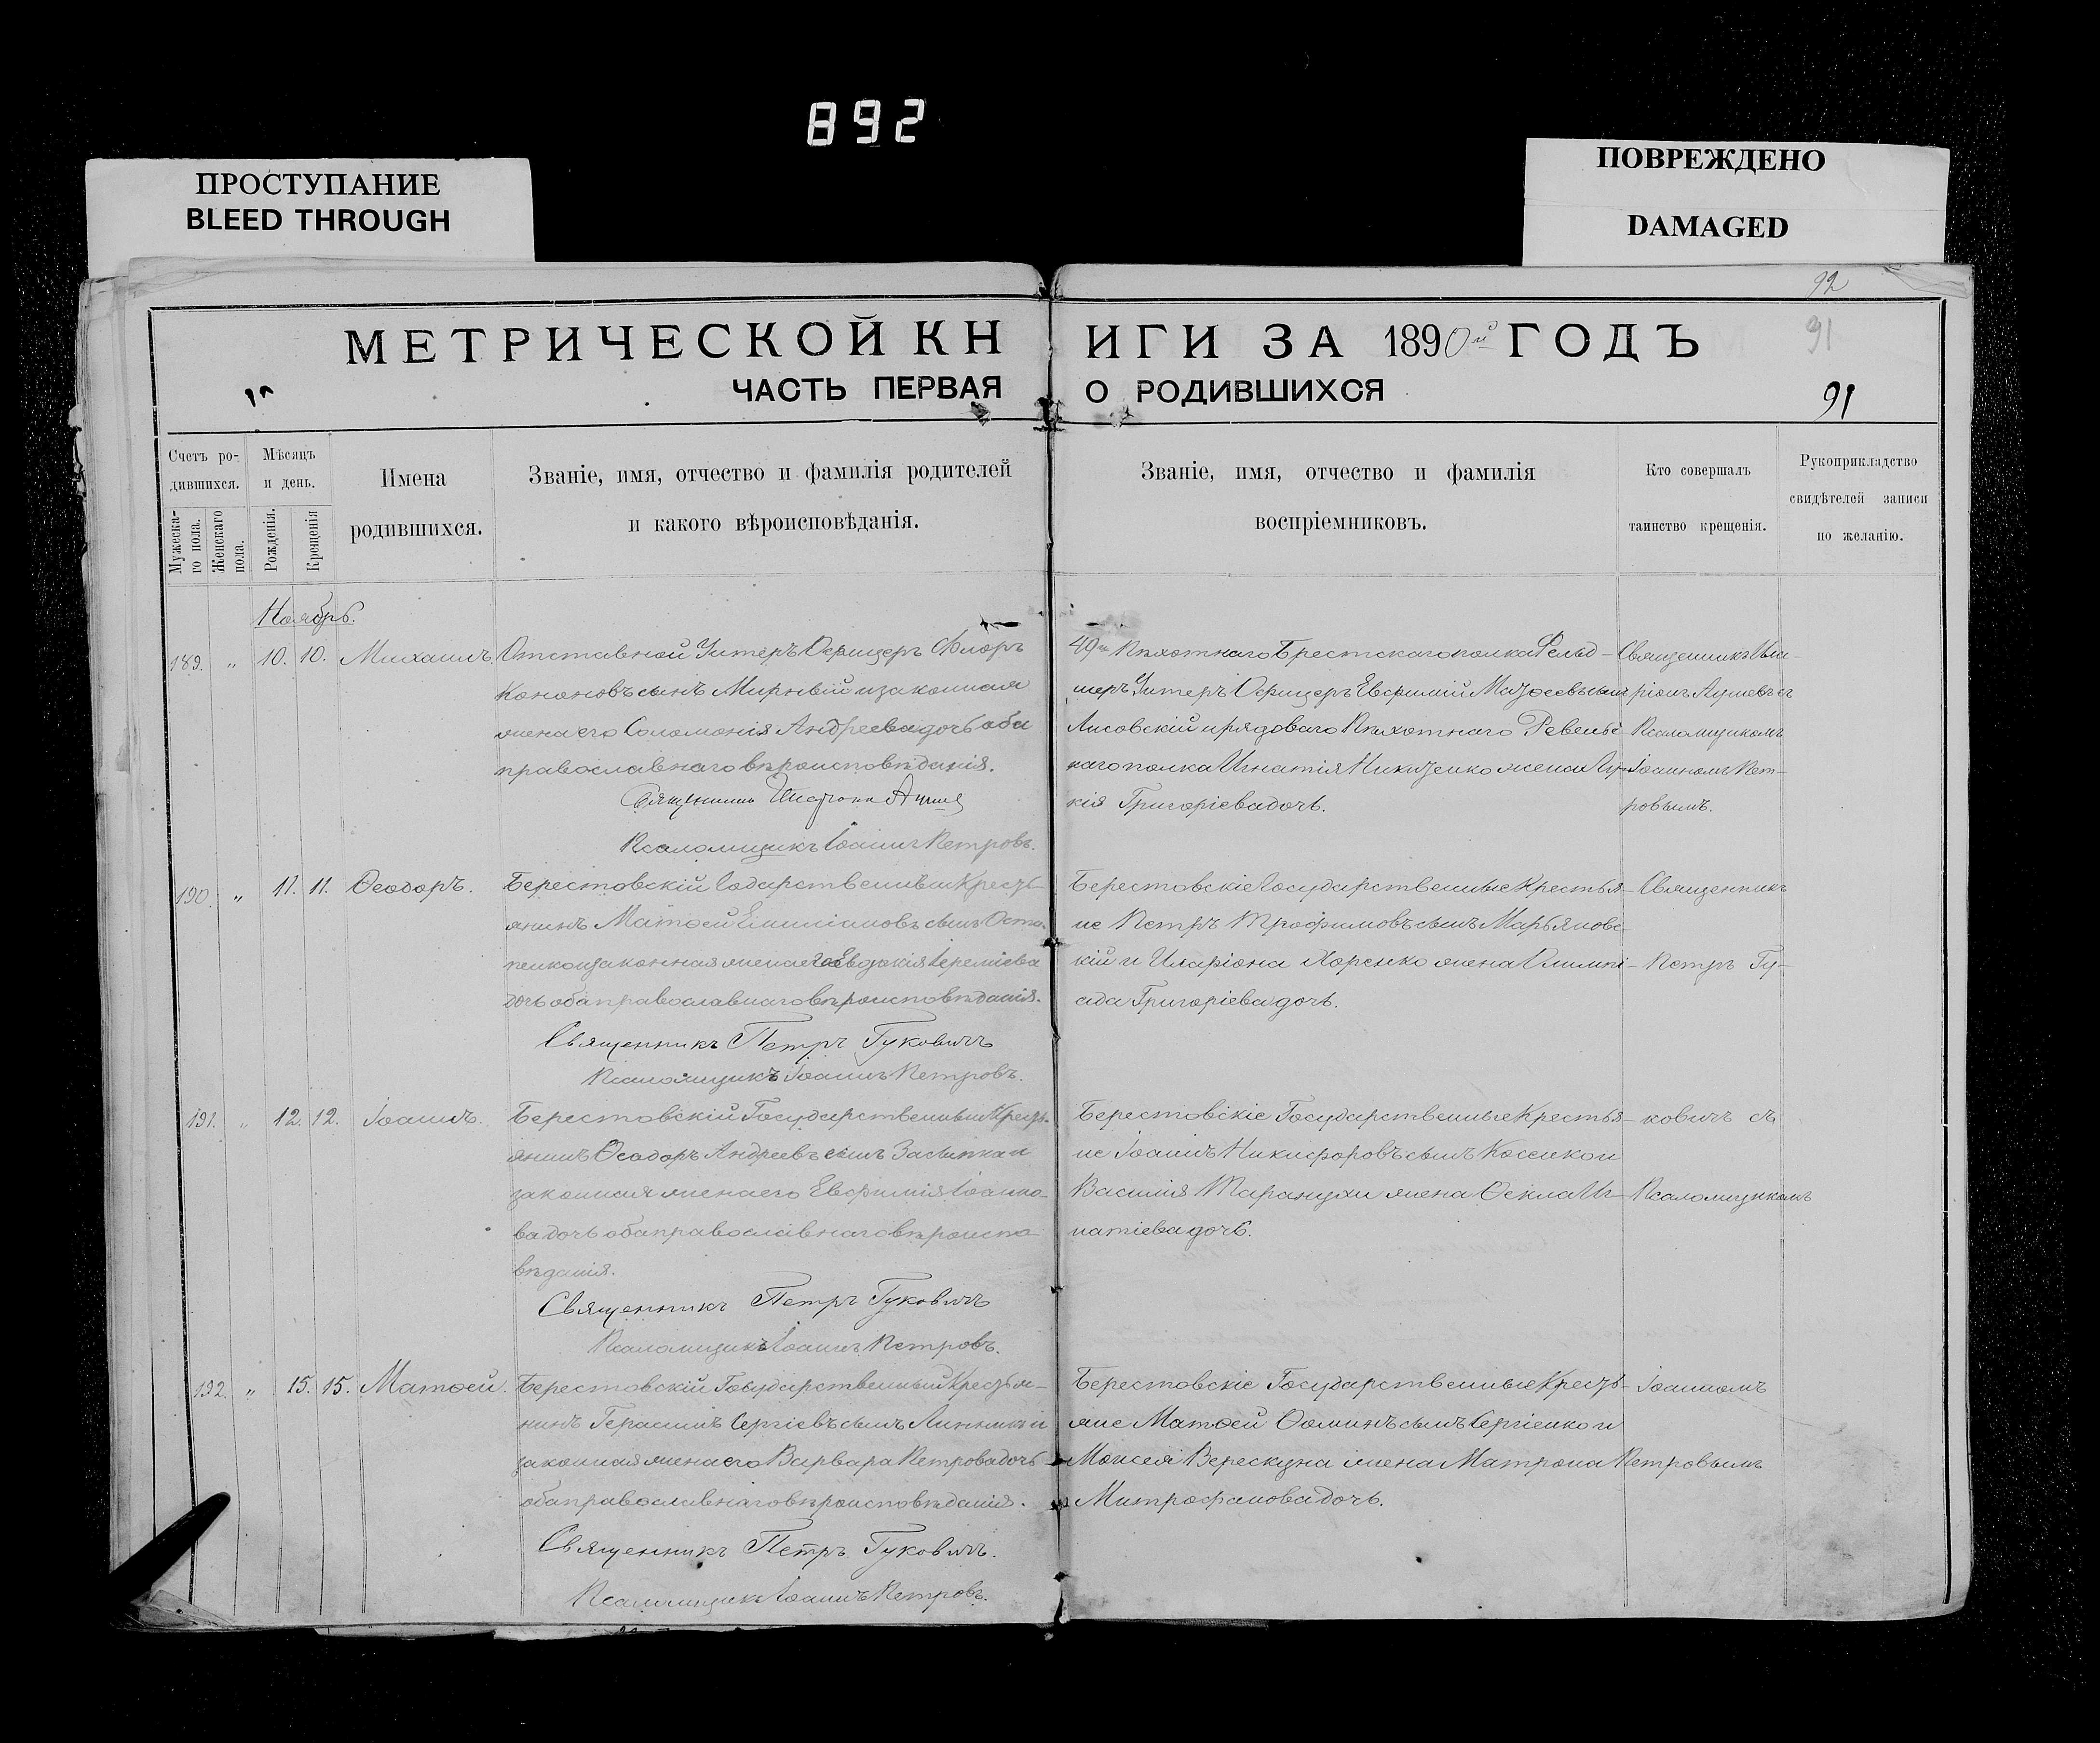 892
ПРОСТУПАНИЕ
BLEED THROUGH
ПОВРЕЖДЕНО
DAMAGED
92
МЕТРИЧЕСКОЙ КНИГИ ЗА 1890й ГОДЪ
91
ЧАСТЬ ПЕРВАЯ О РОДИВШИХСЯ
91
Счетъ ро-
дившихся.
Мужеска-
го пола.
Женскаго
пола.
Мѣсяцъ
и день.
Рожденія.
Крещенія
Имена
родившихся.
Званіе, имя, отчество и фамилія родителей
и какого вѣроисповѣданія.
Званіе, имя, отчество и фамилія
воспріемниковъ.
Кто совершалъ
таинство крещенія.
Рукоприкладство
свидѣтелей записи
по желанію.
Ноябрь.
189. " 10. 10. Михаилъ.
Отставной Унтеръ Офицеръ Флоръ
Кононовъ сынъ Мирный и законная
жена его Соломонія Андреева дочь оба
православнаго вѣроисповѣданія.
Священникъ
Псаломщикъ Іоаннъ Петровъ.
49го Пѣхотнаго Брестскаго полка Фельд-
шеръ Унтеръ Офицеръ Евфимій сынъ
Лисовскій и рядоваго Пѣхотнаго Ревель
наго полка Игнатія Никитенко жена Лу-
кія Григоріева дочь.
Священникъ Ила-
ріонъ съ
Псаломщикомъ
Іоанномъ Пет-
ровымъ.
190. " 11. 11. Ѳеодоръ.
Берестовскій Крестъ-
янинъ Матѳей Емиліановъ сынъ Оста-
пенко и законная жена его Евдокія Іереміева
дочь оба православнаго вѣроисповѣданія.
Священникъ Петръ Гуковичъ
Псаломщикъ Іоаннъ Петровъ.
Берестовскіе Государственные Крестья-
не Петръ Трофимовъ сынъ Марьяновс
кій и Иларіона Хоренко жена Олимпі-
ада Григоріева дочь.
Священникъ
Петръ Гу-
191. " 12. 12. Іоаннъ.
Берестовскій Государственный Кресть-
янинъ Ѳеодоръ Андреевъ сынъ и
законная жена его Евфимія Іоанно-
ва дочь оба православнаго вѣроиспо
вѣданія.
Священникъ Петръ Гуковичъ
Псаломщикъ Іоаннъ Петровъ.
Берестовскіе Государственные Крестья-
не Іоаннъ Никифоровъ сынъ и
Василія Таранухи жена Ѳекла Иг-
натіева дочь.
ковичъ съ
Псаломщикомъ
192. " 15. 15. Матѳей.
Берестовскій Государственный Крестья-
нинъ Герасимъ Сергіевъ сынъ Линникъ и
законная жена его Варвара Петрова дочь
оба православнаго вѣроисповѣданія.
Священникъ Петръ Гуковичъ.
Псаломщикъ Іоаннъ Петровъ.
Берестовскіе Государственные Кресть-
яне Матѳей Ѳоминъ сынъ Сергіенко и
Моисея Верескуна жена Матрона
Митрофанова дочь.
Іоанномъ
Петровымъ